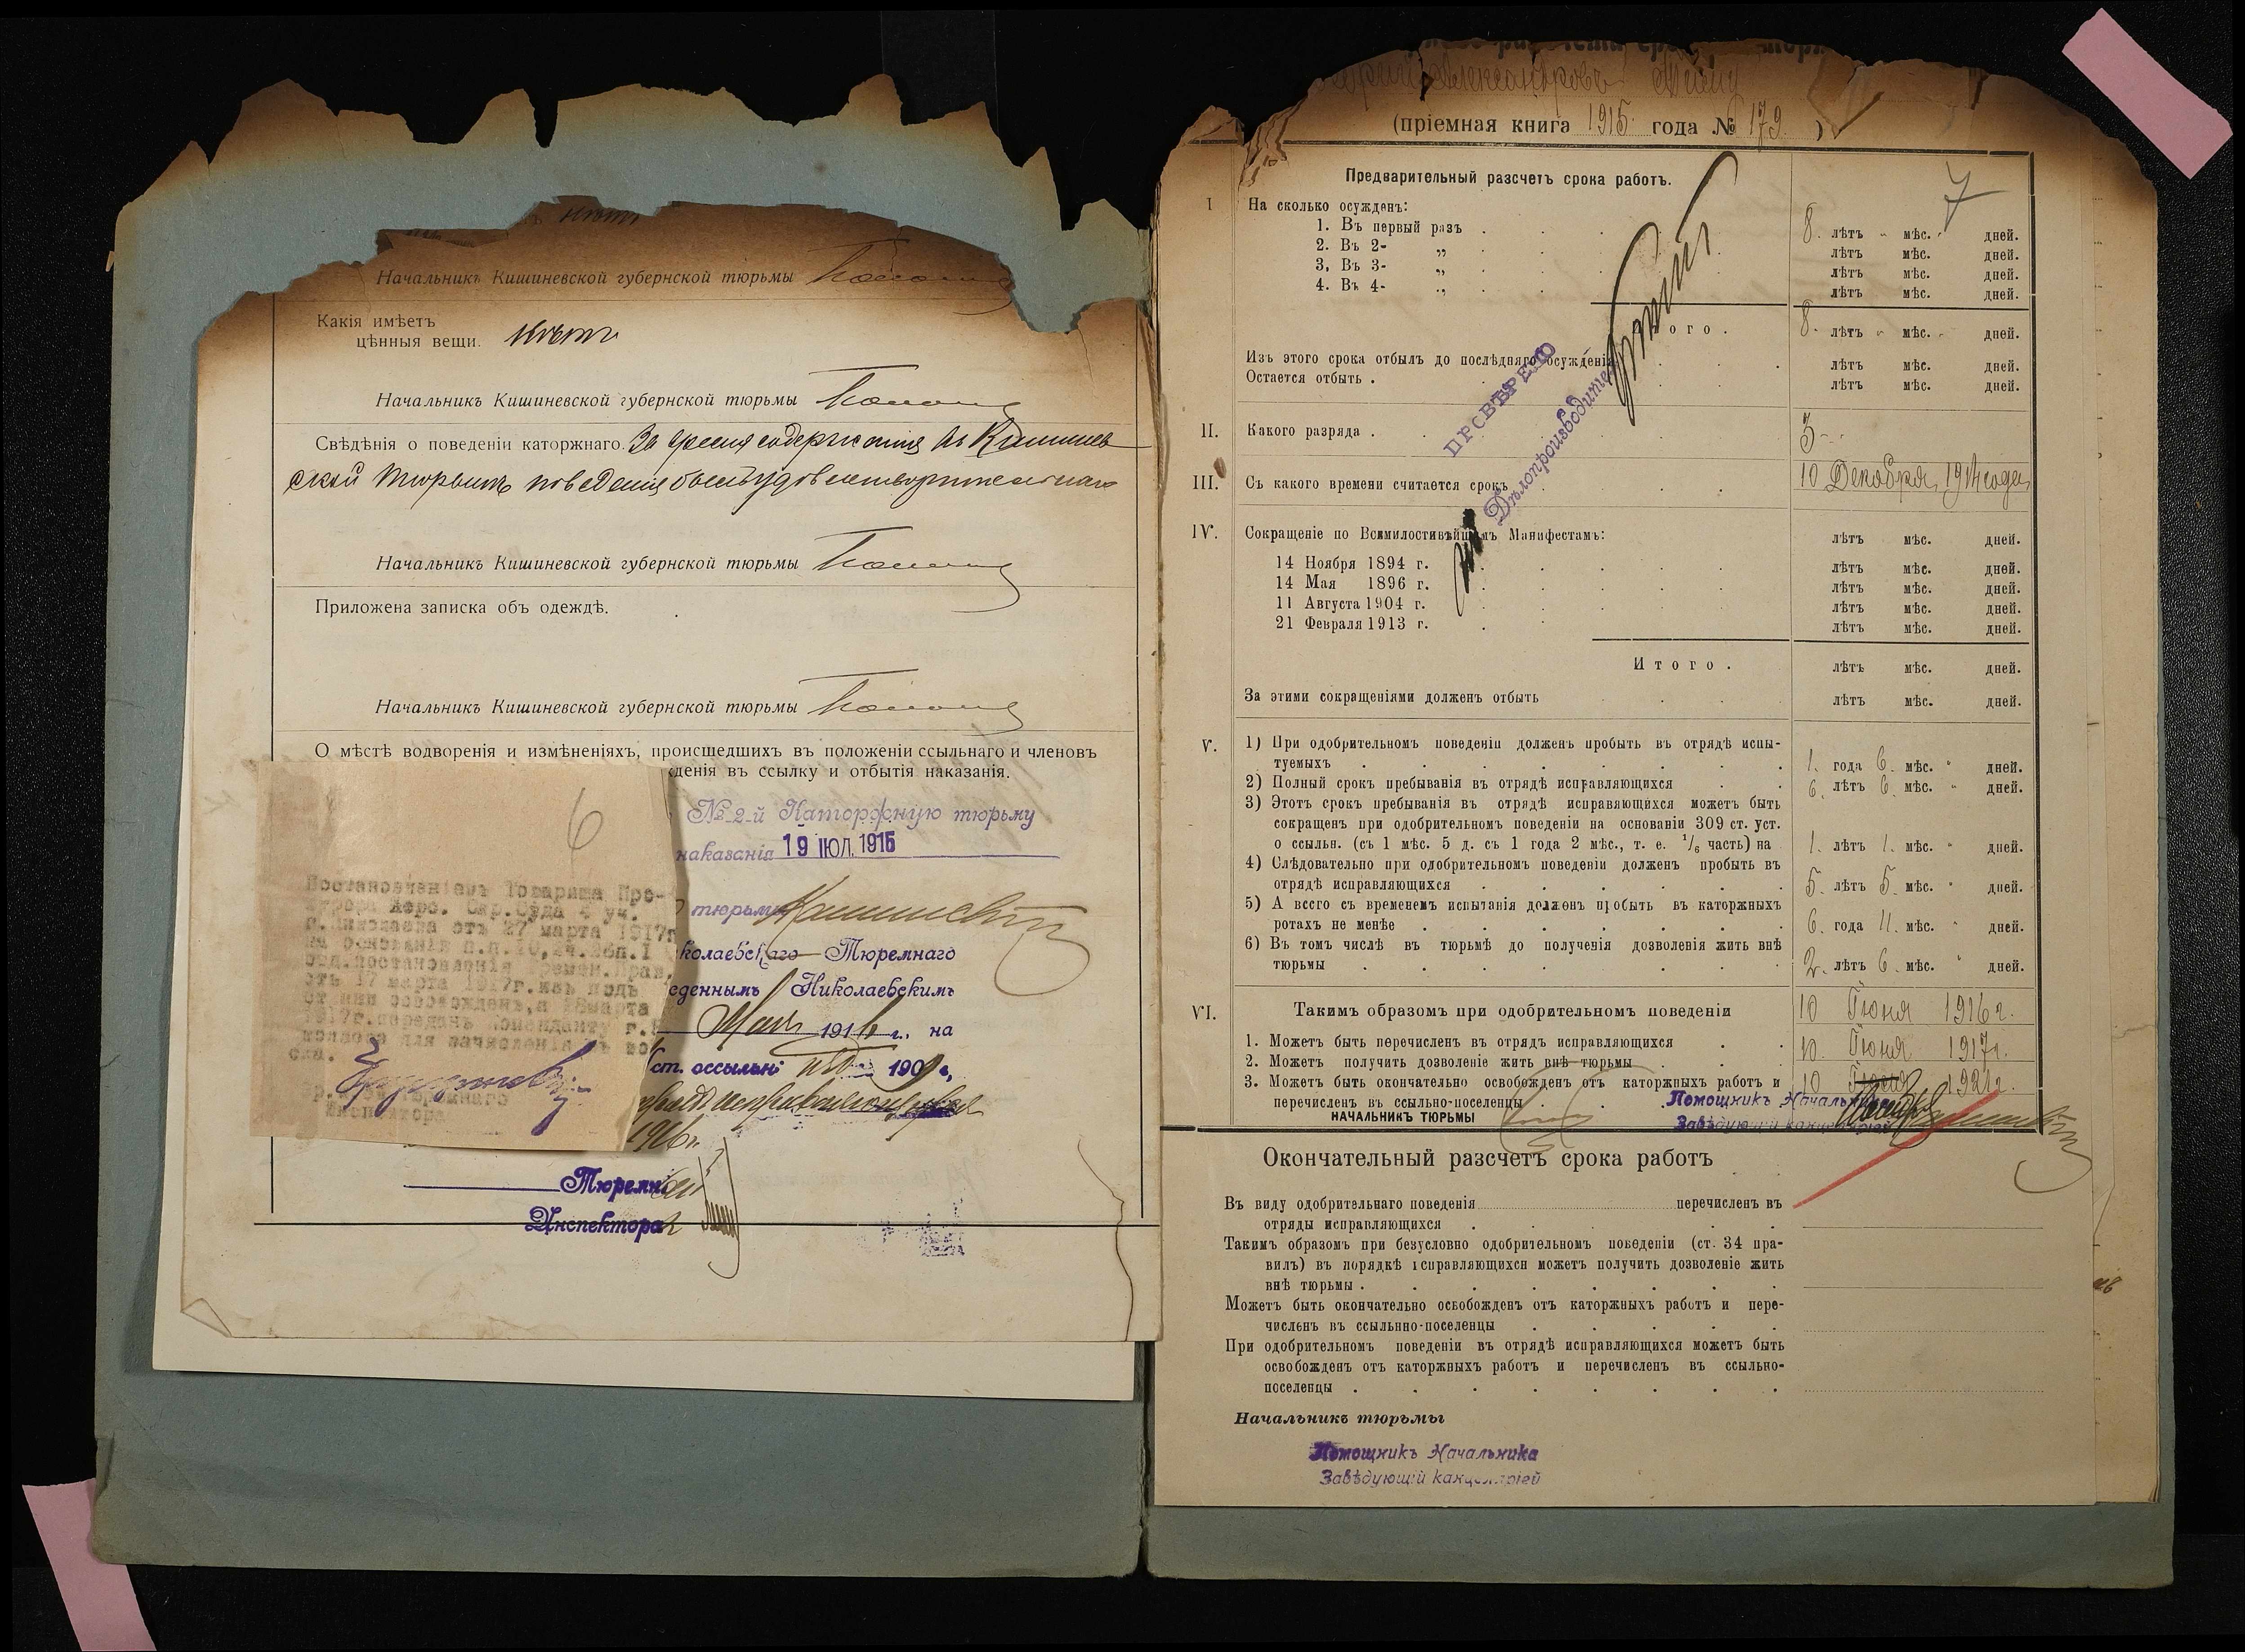 нѣтъ
Начальникъ Кишиневской губернской тюрьмы
Какія имѣетъ
цѣнныя вещи. нѣтъ
Начальникъ Кишиневской губернской тюрьмы
Свѣдѣнія о поведеніи каторжнаго. За время содержанія въ Кишинев
ской тюрьмѣ поведенія былъ удовлетворительнаго
Начальникъ Кишиневской губернской тюрьмы
Приложена записка объ одеждѣ.
Начальникъ Кишиневской губернской тюрьмы
О мѣстѣ водворенія и измѣненіяхъ, происшедшихъ въ положеніи ссыльнаго и членовъ
денія въ ссылку и отбытія наказанія.
6
Постановленіемъ Товарища Про-
курора Херс. Окр. Суда 4 уч.
г. Николаева отъ 27 марта 1917г
на основаніи п.п.
постановленія Времен. Прав.
отъ 17 марта 1917г. изъ подъ
стражи освобожденъ, а 28 марта
1917г. переданъ Коменданту г.
для зачисленія въ во
ска.
Тюремнаго
Инспектора
№ 2-й Каторжную тюрьму
наказанія 19 ІЮЛ. 1915
тюрьмы
колаевскаго Тюремнаго
еденнымъ Николаевскимъ
1916 г., на
ст. о ссыльн 1909 г,
1916 г.
Тюремн
Инспектора
(пріемная книга 1915 года № 179 )
7
Предварительный разсчетъ срока работъ.
I На сколько осужденъ:
1. Въ первый разъ . . . 8. лѣтъ " мѣс. " дней.
2. Въ 2- „ лѣтъ мѣс. дней.
3. Въ 3- „ лѣтъ мѣс. дней.
4. Въ 4- „ лѣтъ мѣс. дней.
Итого. 8. лѣтъ " мѣс. " дней.
Изъ этого срока отбылъ до послѣдняго осужденія лѣтъ мѣс. дней.
Остается отбыть . лѣтъ мѣс. дней.
ПРОВѢРЕНО
Дѣлопроизводитель
II. Какого разряда . 3
III. Съ какого времени считается срокъ 10 Декабря 1914 года
IV. Сокращеніе по Всемилостивѣйшимъ Манифестамъ: лѣтъ мѣс. дней.
14 Ноября 1894 г. лѣтъ мѣс. дней.
14 Мая 1896 г. лѣтъ мѣс. дней.
11 Августа 1904 г. лѣтъ мѣс. дней.
21 Февраля 1913 г. лѣтъ мѣс. дней.
Итого. лѣтъ мѣс. дней.
За этими сокращеніями долженъ отбыть лѣтъ мѣс. дней.
V. 1) При одобрительномъ поведеніи долженъ пробыть въ отрядѣ испы-
туемыхъ 1. года 6. мѣс. " дней.
2) Полный срокъ пребыванія въ отрядѣ исправляющихся 6. лѣтъ 6. мѣс. " дней.
3) Этотъ срокъ пребыванія въ отрядѣ исправляющихся можетъ быть
сокращенъ при одобрительномъ поведеніи на основаніи 309 ст. уст.
о ссыльн. (съ 1 мѣс. 5 д. съ 1 года 2 мѣс., т. е. 1/6 часть) на 1. лѣтъ 1. мѣс. " дней.
4) Слѣдовательно при одобрительномъ поведеніи долженъ пробыть въ
отрядѣ исправляющихся 5. лѣтъ 5. мѣс. " дней.
5) А всего съ временемъ испытанія долженъ пробыть въ каторжныхъ
ротахъ не менѣе 6. года 11. мѣс. " дней.
6) Въ томъ числѣ въ тюрьмѣ до полученія дозволенія жить внѣ
тюрьмы 2. лѣтъ 6. мѣс. " дней.
VI. Такимъ образомъ при одобрительномъ поведеніи 10 Іюня 1916 г.
1. Можетъ быть перечисленъ въ отрядъ исправляющихся 10. Іюня 1917 г.
2. Можетъ получить дозволеніе жить внѣ тюрьмы
3. Можетъ быть окончательно освобожденъ отъ каторжныхъ работъ и 10 1921 г.
перечисленъ въ ссыльно-поселенцы Помощникъ Начальника
НАЧАЛЬНИКЪ ТЮРЬМЫ Завѣдующій канцеляріей
Окончательный разсчетъ срока работъ
Въ виду одобрительнаго поведенія перечисленъ въ
отряды исправляющихся
Такимъ образомъ при безусловно одобрительномъ поведеніи (ст. 34 пра-
вилъ) въ порядкѣ исправляющихся можетъ получить дозволеніе жить
внѣ тюрьмы .
Можетъ быть окончательно освобожденъ отъ каторжныхъ работъ и пере-
численъ въ ссыльно-поселенцы
При одобрительномъ поведеніи въ отрядѣ исправляющихся можетъ быть
освобожденъ отъ каторжныхъ работъ и перечисленъ въ ссыльно-
поселенцы .
Начальникъ тюрьмы
Помощникъ Начальника
Завѣдующій канцеляріей